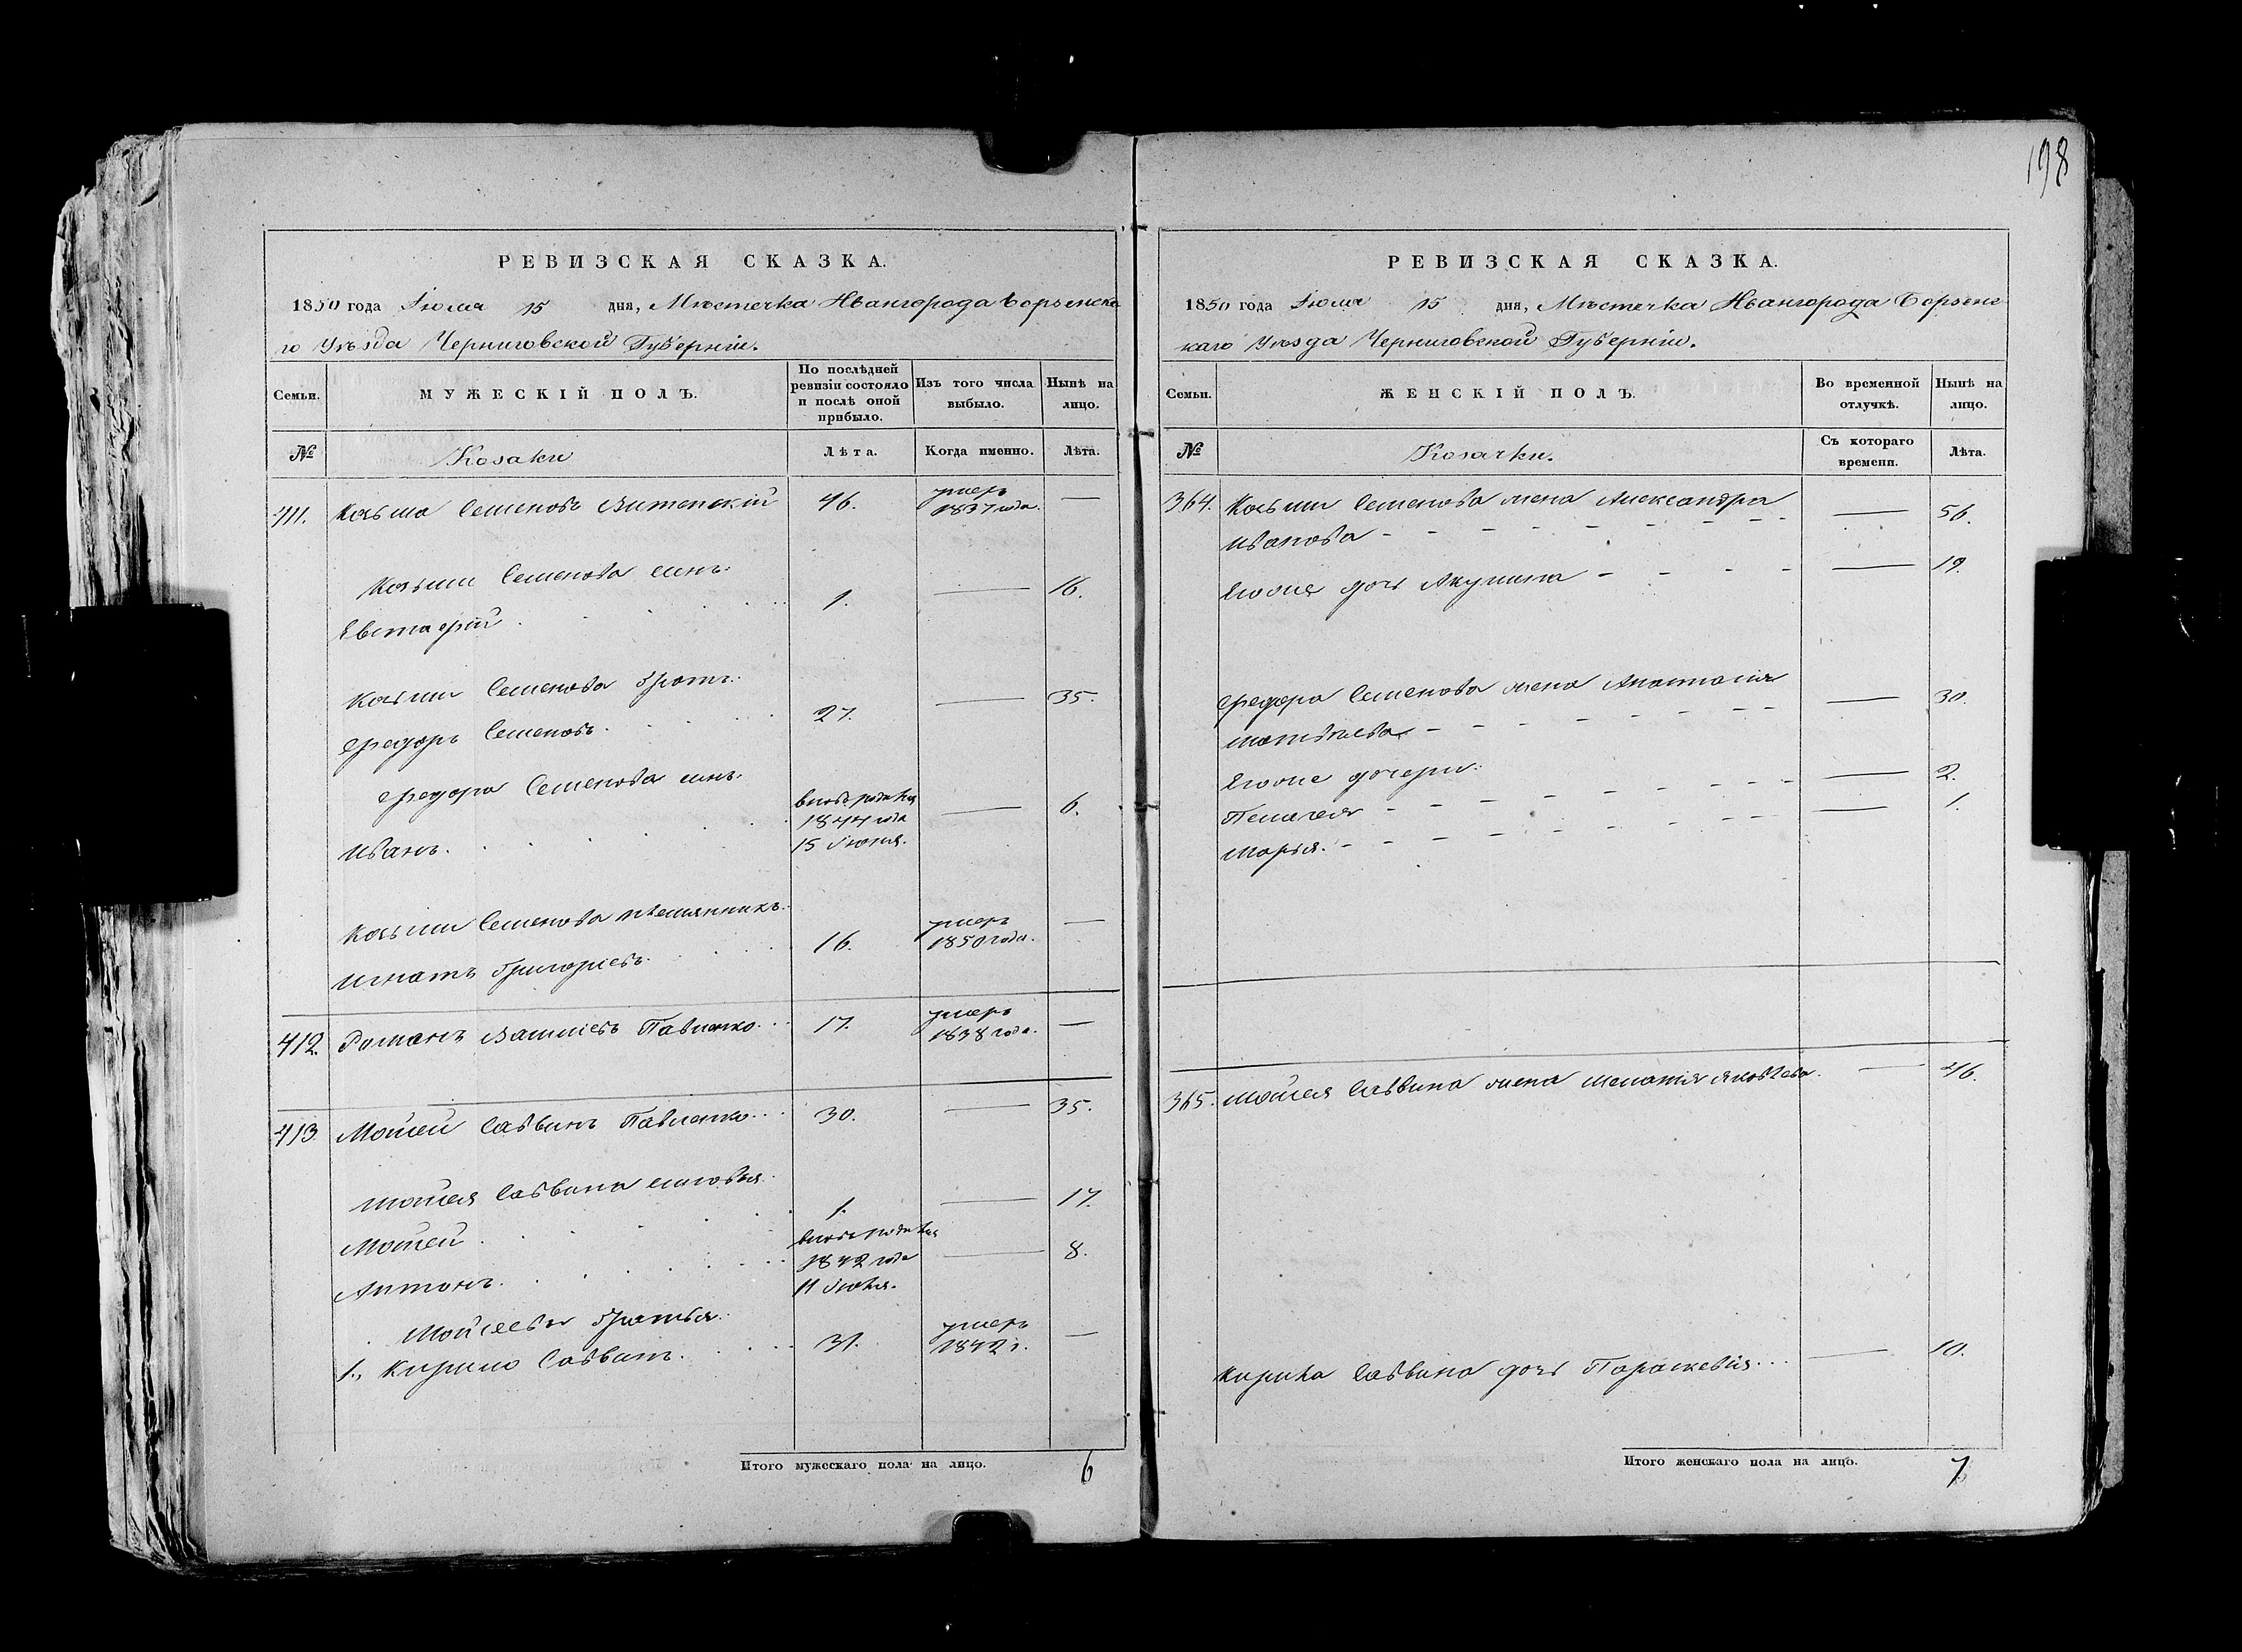 198
РЕВИЗСКАЯ СКАЗКА.
1850 года Июля 15 дня, Мѣстечка Ивангорода Борзенска
го Уѣзда Черниговской Губерніи.
Семьи.
МУЖЕСКІЙ ПОЛЪ.
По послѣдней ревизіи состояло и послѣ оной прибыло.
Изъ того числа выбыло.
Нынѣ на лицо.
№
Козаки
Лѣта.
Когда именно.
Лѣта.
411. Козьма Семеновъ 46. умеръ 1837 года. —
Козьмы Семенова сынъ:
Евстафій 1. — 16.
Козьмы Семенова братъ:
Федоръ Семеновъ. 27. — 35.
Федора Семенова сынъ:
Иванъ. 1844 года 15 Июня. — 6.
Козьмы Семенова племянникъ:
Игнатъ Григорьевъ. 16. умеръ 1850 года. —
412. Романъ Павленко 17. умеръ 1838 года. —
413. Мойсей Саввинъ Павленко 30. — 35.
Мойсея Саввина сыновья:
Мойсей 1. — 17.
Антонъ. 1842 года 11 Июня. — 8.
Мойсеевы братья:
1., Кирило Саввинъ. 31. умеръ 1842 г. —
Итого мужескаго пола на лицо. 6
РЕВИЗСКАЯ СКАЗКА.
1850 года Июля 15 дня, Мѣстечка Ивангорода Борзенс
каго Уѣзда Черниговской Губерніи.
Семьи.
ЖЕНСКІЙ ПОЛЪ.
Во временной отлучкѣ.
Нынѣ на лицо.
№
Козачки.
Съ котораго времени.
Лѣта.
364. Козьмы Семенова жена Александра
Иванова — 56.
Егоже дочь Акулина — 19.
Федора Семенова жена Анастасія
Матвѣева — 30.
Егоже дочери:
Пелагея — 2.
Марья. — 1.
365. Мойсея Саввина жена Меланія Яковлева. — 46.
Кирила Саввина дочь Параскевія — 10.
Итого женскаго пола на лицо. 7